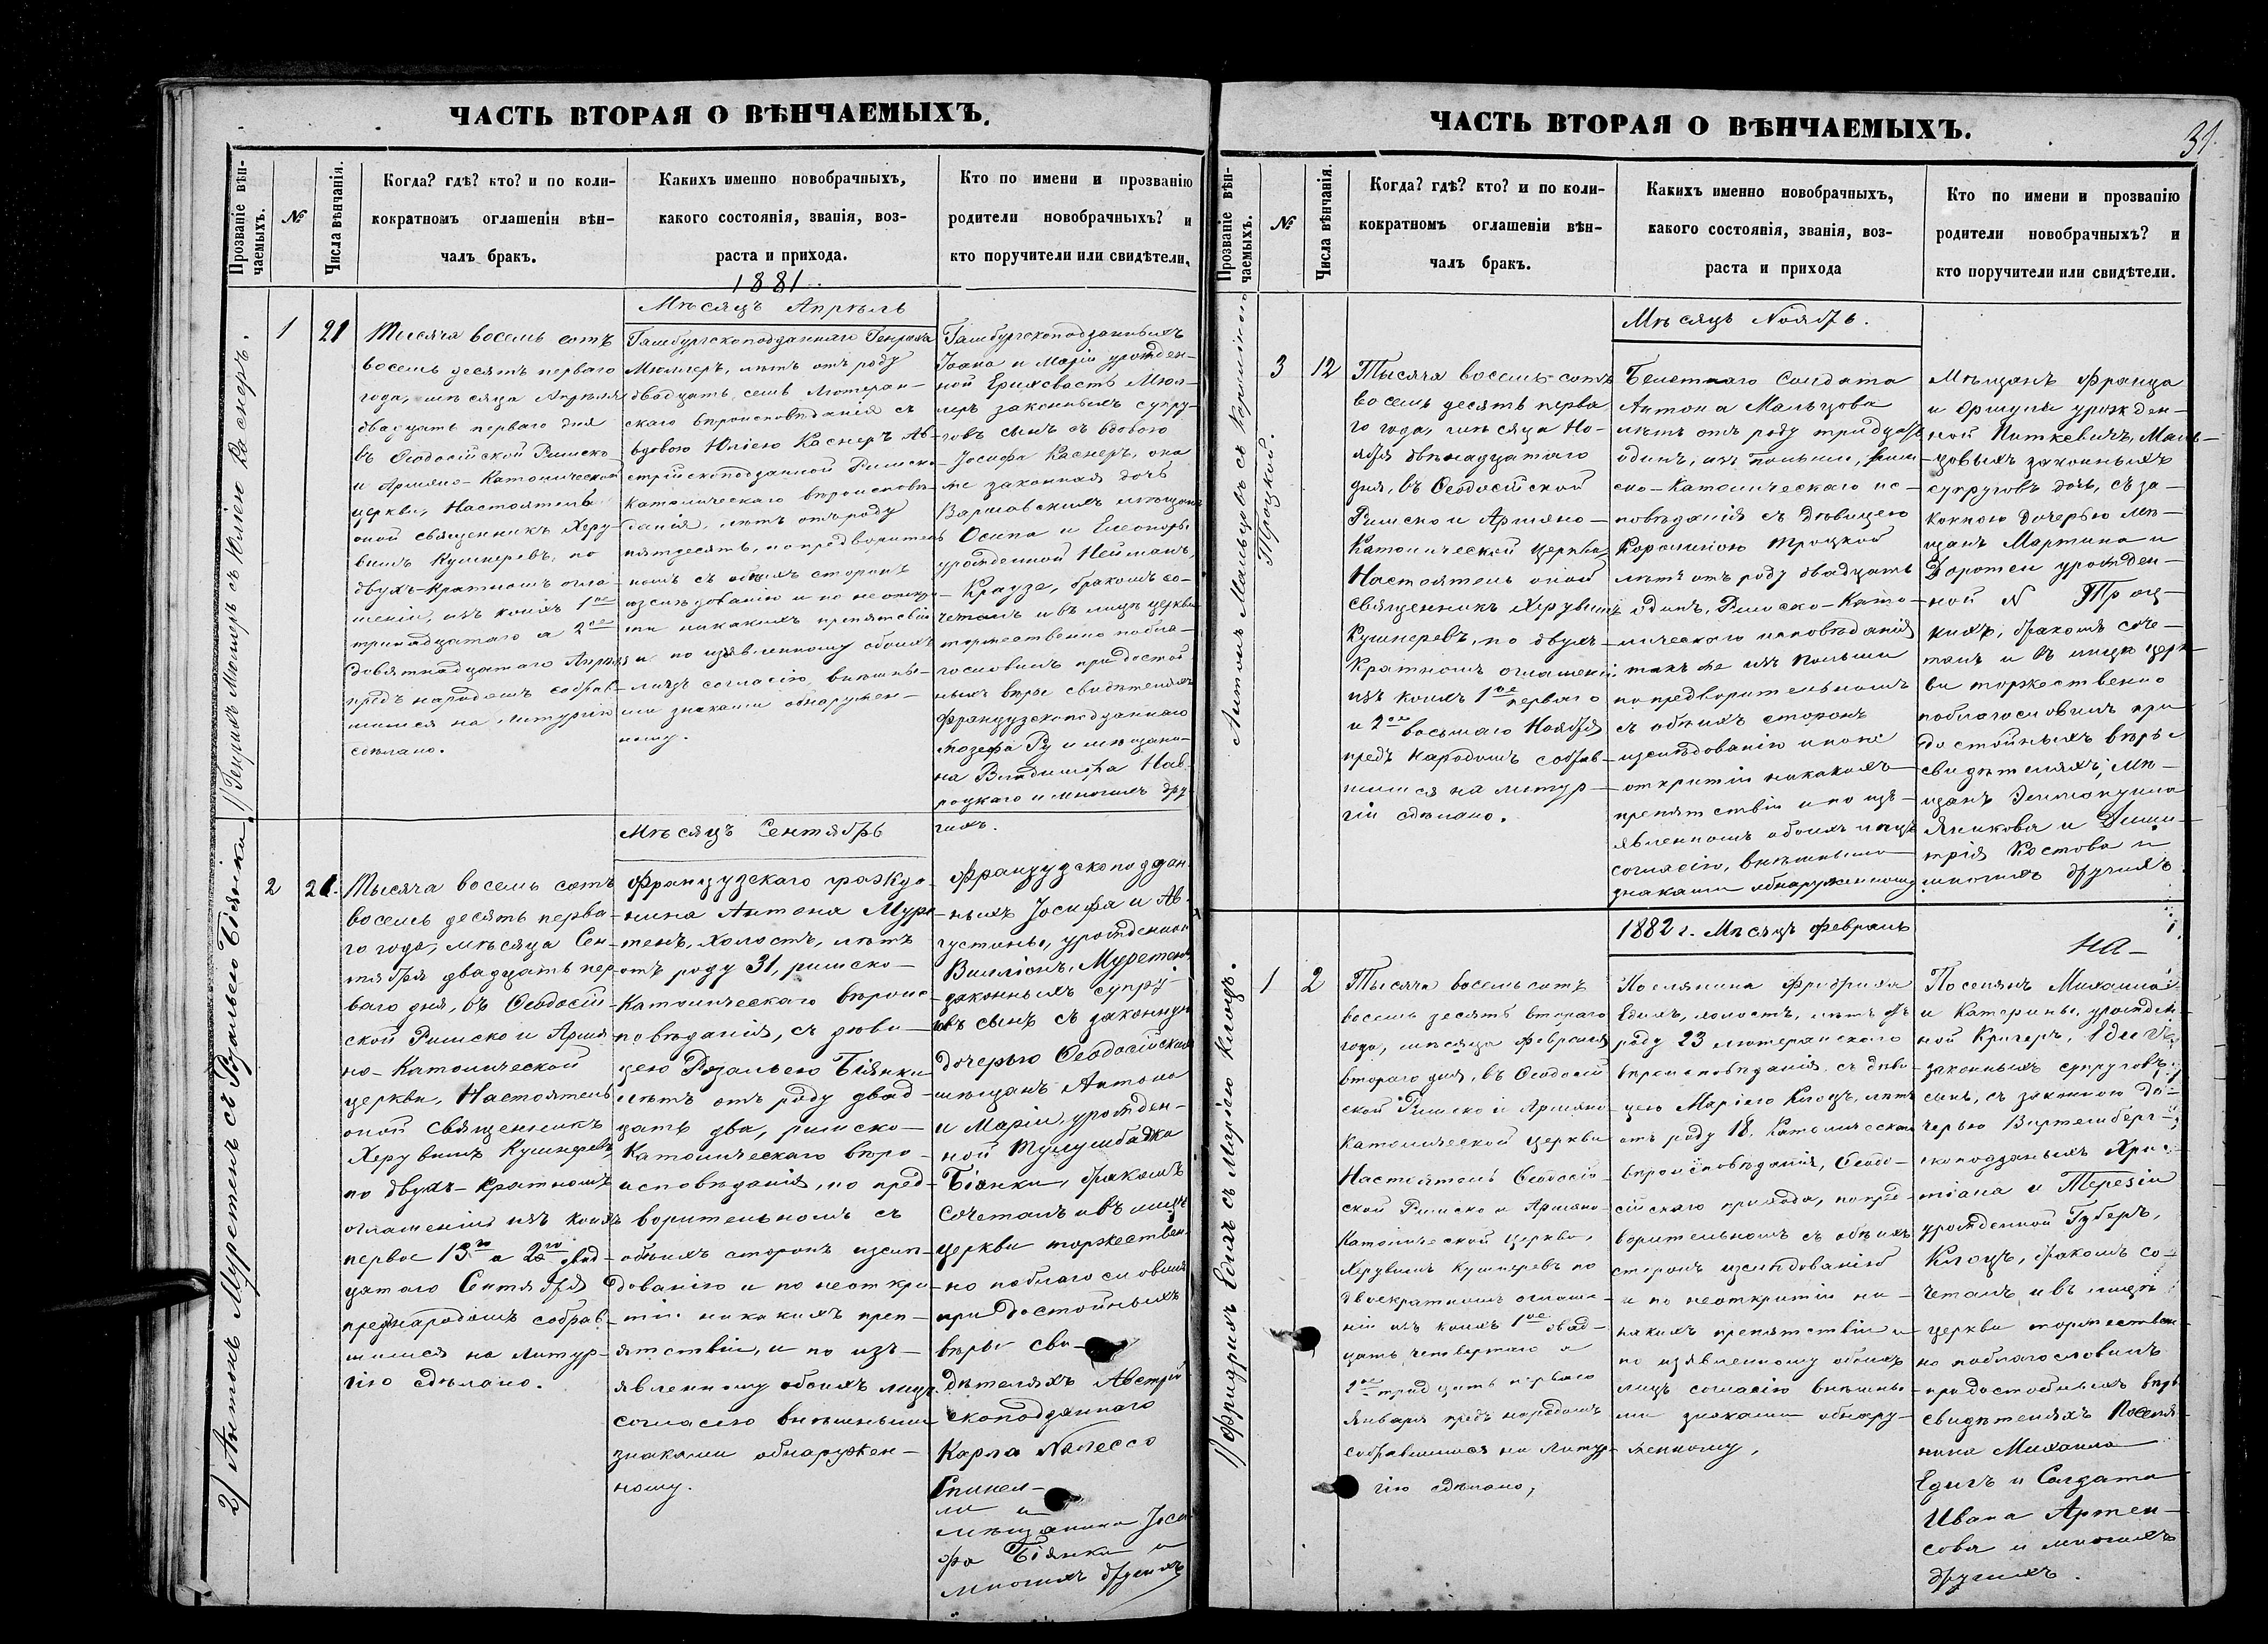 ЧАСТЬ ВТОРАЯ О ВѢНЧАЕМЫХЪ.
Прозваніе вѣн-
чаемыхъ.
№
Числа вѣнчанія.
Когда? гдѣ? кто? и по коли-
кократномъ оглашеніи вѣн-
чалъ бракъ.
Какихъ именно новобрачныхъ,
какого состоянія, званія, воз-
раста и прихода.
Кто по имени и прозванію
родители новобрачныхъ? и
кто поручители или свидѣтели.
1881.
Мѣсяцъ Апрѣль
1) Генрихъ Мюллеръ съ Юліею Каснеръ.
1
21
Тысяча восемь сотъ
восемь десятъ перваго
года, мѣсяца Апрѣля
двадцать перваго дня
въ Ѳеодосійской Римско
и Армяно-Католической
церкви, Настоятель
оной священникъ Херу-
вимъ Кушнеревъ, по
двухъ-кратномъ огла-
шеніи, изъ коихъ 1ое
тринадцатаго а 2ое
девятнадцатаго Апрѣля
предъ народомъ собрав-
шимся на литургію
сдѣлано.
Гамбургскоподданнаго Генриха
Мюллеръ, лѣтъ отъ роду
двадцать семь Лютеран-
скаго вѣроисповѣданія съ
вдовою Юліею Каснеръ Ав-
стрійскоподданной Римско
Католическаго вѣроисповѣ-
данія, лѣтъ отъ роду
пятдесятъ, по предворитель
номъ съ обѣихъ сторонъ
изслѣдованію и по неоткры
ти никакихъ препятствій
и по изъявленному обоихъ
лицъ согласію, внѣшны-
ми знаками обнаружен-
ному.
Гамбургскоподданныхъ
Іоана и Маріи урожден-
ной Мюл-
леръ законныхъ супру-
говъ сынъ съ вдовою
Іосифа Каснеръ, она
же законная дочь
Варшавскихъ мѣщанъ
Осипа и Елеоноры
урожденной Нейманъ,
Краузе, бракомъ со-
четалъ и въ лицѣ церкви
торжественно побла-
гословилъ при достой
ныхъ вѣры свидѣтеляхъ
Французскоподданнаго
Жозефа Ру и мѣщани-
на Владимира Нав-
роцкаго и многихъ дру
гихъ.
Мѣсяцъ Сентябрь
2) Антонъ Муретенъ съ Розальею Біянки
2
21
Тысяча восемь сотъ
восемь десятъ перва-
го года, мѣсяца Сен-
тября двадцать пер-
ваго дня, въ Ѳеодосій-
ской Римско и Армя
но-Католической
церкви, Настоятель
оной священникъ
Херувимъ Кушнеревъ,
по двухъ-кратномъ
оглашеніи изъ коихъ
первое 13го а 2ое двад-
цатаго Сентября
преднародомъ собрав-
шимся на Литур-
гію сдѣлано.
Французскаго гражда-
нина Антона Муре-
тенъ, холостъ, лѣтъ
отъ роду 31, римско-
Католическаго вѣроис-
повѣданія, съ дѣви-
цею Розальею Біянки
лѣтъ отъ роду двад-
цать два, римско-
Католическаго вѣро-
исповѣданія, по пред-
ворительномъ съ
обѣихъ сторонъ изслѣ-
дованію и по неоткры
тіи никакихъ преп-
ятствіи, и по изъ-
явленному обоихъ лицъ
согласію внѣшными
знаками обнаружен-
ному.
Французскоподдан
ныхъ Іосифа и Ав-
густины, урожденной
Вилліонъ, Муретенъ
законныхъ супру-
говъ сынъ съ законную
дочерью Ѳеодосійскихъ
мѣщанъ Антона
и Маріи, урожден-
ной
Біанки, бракомъ
сочеталъ и въ лицѣ
церкви торжествен-
но поблагословилъ
при достойныхъ
вѣры сви-
дѣтеляхъ Австрій
скоподданнаго
Карла
Спинел-
ли и
мѣщанина Іоси
фа Біянки и
многихъ другихъ
ЧАСТЬ ВТОРАЯ О ВѢНЧАЕМЫХЪ.
31
Прозваніе вѣн-
чаемыхъ.
№
Числа вѣнчанія.
Когда? гдѣ? кто? и по коли-
кократномъ оглашеніи вѣн-
чалъ бракъ.
Какихъ именно новобрачныхъ,
какого состоянія, званія, воз-
раста и прихода
Кто по имени и прозванію
родители новобрачныхъ? и
кто поручители или свидѣтели.
Мѣсяцъ Ноябрь.
Антонъ Мальцовъ съ Королиною
Троцкой.
3
12
Тысяча восемь-сотъ
восемь десятъ перва
го года, мѣсяца Но-
ября двѣнадцатаго
дня, въ Ѳеодосійской
Римско и Армяно-
Католической церкви,
Настоятель оной
священникъ Херувимъ
Кушнеревъ, по двухъ-
кратномъ оглашеніи,
изъ коихъ 1ое перваго
и 2ое восьмаго Ноября
предъ народомъ собрав-
шимся на литур-
гіи сдѣлано.
Белетнаго Солдата
Антона Мальцова
лѣтъ отъ роду тридцать
одинъ, изъ Польши, рим
ско-Католическаго ис-
повѣданія съ Дѣвицею
Королиною Троцкой
лѣтъ отъ роду двадцать
одинъ, Римско-Като-
лическаго исповѣданія
такъ же изъ Польши
по предворительномъ
съ обѣихъ сторонъ
изслѣдованію и по не
открытіи никакихъ
препятствіи и по изъ-
явленномъ обоихъ лицъ
согласію, внѣшными
знаками обнаруженному
Мѣщанъ Франца
и Оршули урожден-
ной Питкевичъ, Маль-
цовыхъ законныхъ
супруговъ дочь, съ за-
конною дочерью мѣ-
щанъ Мартина и
Доротеи урожден-
ной N Троц-
кихъ, бракомъ соче-
талъ и въ лицѣ церк-
ви торжественно
поблагословилъ при
достойныхъ вѣры
свидѣтеляхъ, мѣ-
щанъ
Яникова и Дими-
трія Костова и
многихъ другихъ
1882 г. Мѣсяцъ Февраль
1) Фридрихъ Едигъ съ Маріею Клоцъ.
1
2
Тысяча восемь сотъ
восемь десятъ второго
года, мѣсяца Февраля
второго дня, въ Ѳеодосій
ской Римско и Армяно
Католической церкви
Настоятель Ѳеодосій-
ской Римско и Армяно-
Католической церкви,
Херувимъ Кушнеревъ по
двоекратномъ оглаше-
ніи изъ коихъ 1ое двад-
цать четвертаго и
2ое тридцать перваго
Января предъ народомъ
собравшимся на Литур-
гію сдѣлано,
Поселянина Фридриха
Едихъ, холостъ, лѣтъ отъ
роду 23 лютеранскаго
вѣроисповѣданія, съ дѣви-
цею Маріею Клоцъ, лѣтъ
отъ роду 18. Католическаго
вѣроисповѣданія, Ѳеодо-
сійскаго прихода, по пред-
ворительномъ съ обѣихъ
сторонъ изслѣдованію
и по неоткрытіи ни-
какихъ препятствіи и
по изявленному обоихъ
лицъ согласію внѣшны-
ми знаками обнару-
женному,
на-
Поселянъ Михаила
и Катерины, урожден-
ной Кригеръ, Едигъ
законныхъ супруговъ
сынъ, съ законною до-
черью Виртемберг-
скоподданыхъ Хри-
тіана и Терезіи
урожденной Губеръ,
Клоцъ, бракомъ со-
четалъ, и въ лицѣ
церкви торжествен
но поблагословилъ
при достойныхъ вѣры
свидѣтеляхъ Поселя-
нина Михаила
Едигъ и Солдата
Ивана Артем-
сова и многихъ
другихъ.